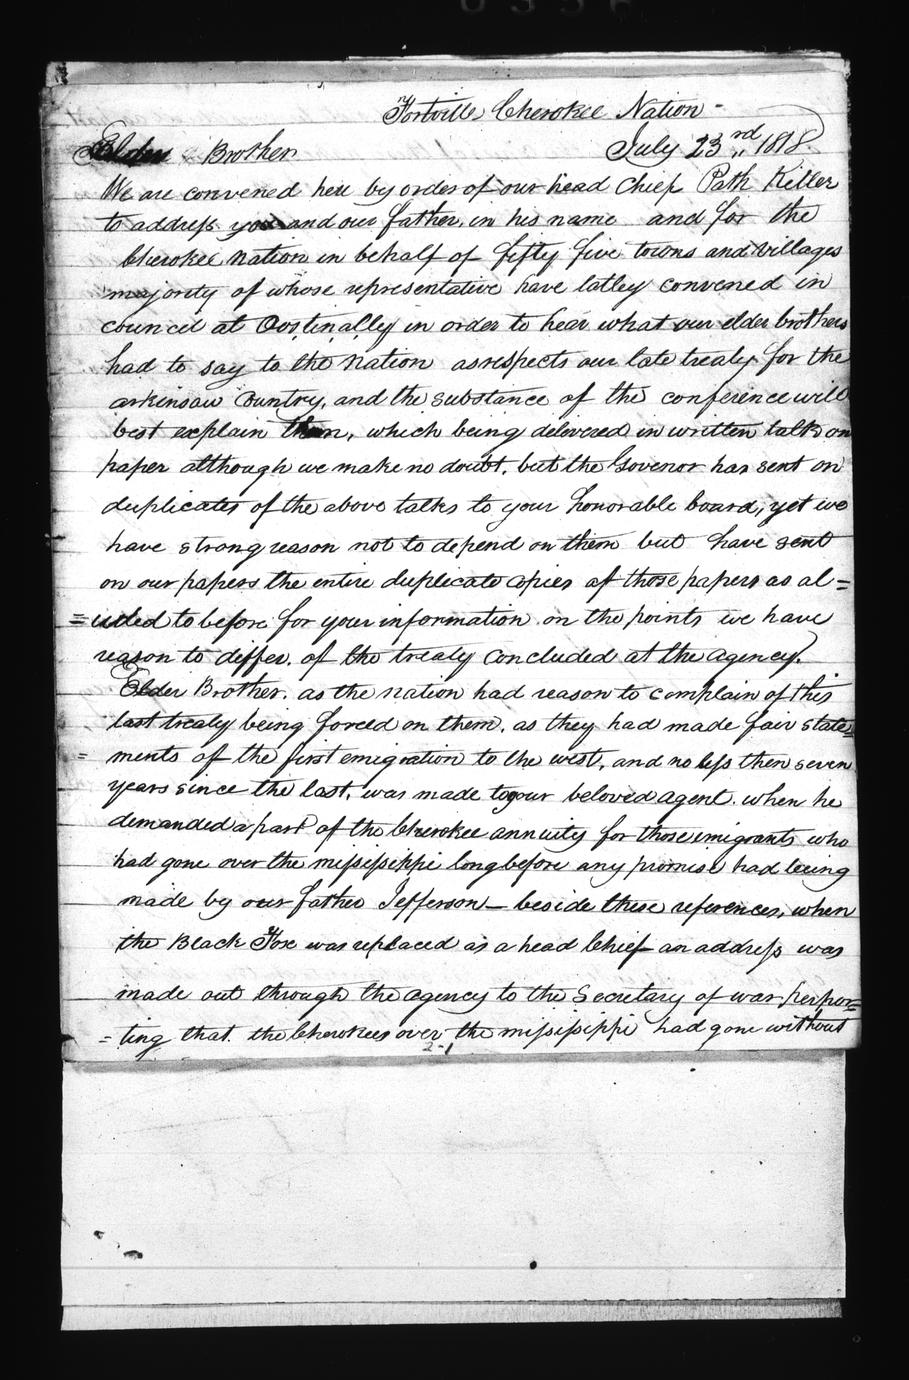 Fortville Cherokee Nation -
July 23rd 1818.
Elder Brother
We are convened here by order of our head Chief Path Killer
to address you and our father, in his name and for the
Cherokee Nation in behalf of fifty five towns and villages
majority of whose representative have latley convened in
council at Oostinally in order to hear what our elder brothers
had to say to the Nation as respects our late treaty for the
arkinsaw Country, and the substance of the conference will
best explain them, which being delivered in written talks on
paper although we make no doubt, but the Govenor has sent on
duplicates of the above talks to your honorable board, yet we
have strong reason not to depend on them but have sent
on our papers the entire duplicate copies of those papers as al=
=uded to before for your information on the points we have
reason to differ. of the treaty concluded at the agency.
Elder Brother. as the nation had reason to complain of this
last treaty being forced on them, as they had made fair state=
=ments of the first emigration to the west, and no less then seven
years since the last, was made to our beloved agent. when he
demanded a part of the Cherokee annuity for those emigrants who
had gone over the mississippi long before any promise had being
made by our father Jefferson — beside these references, when
the Black Fox was replaced as a head Chief an address was
made out through the agency to the Secretary of war perpor=
=ting that the Cherokees over the mississippi had gone without
2-1